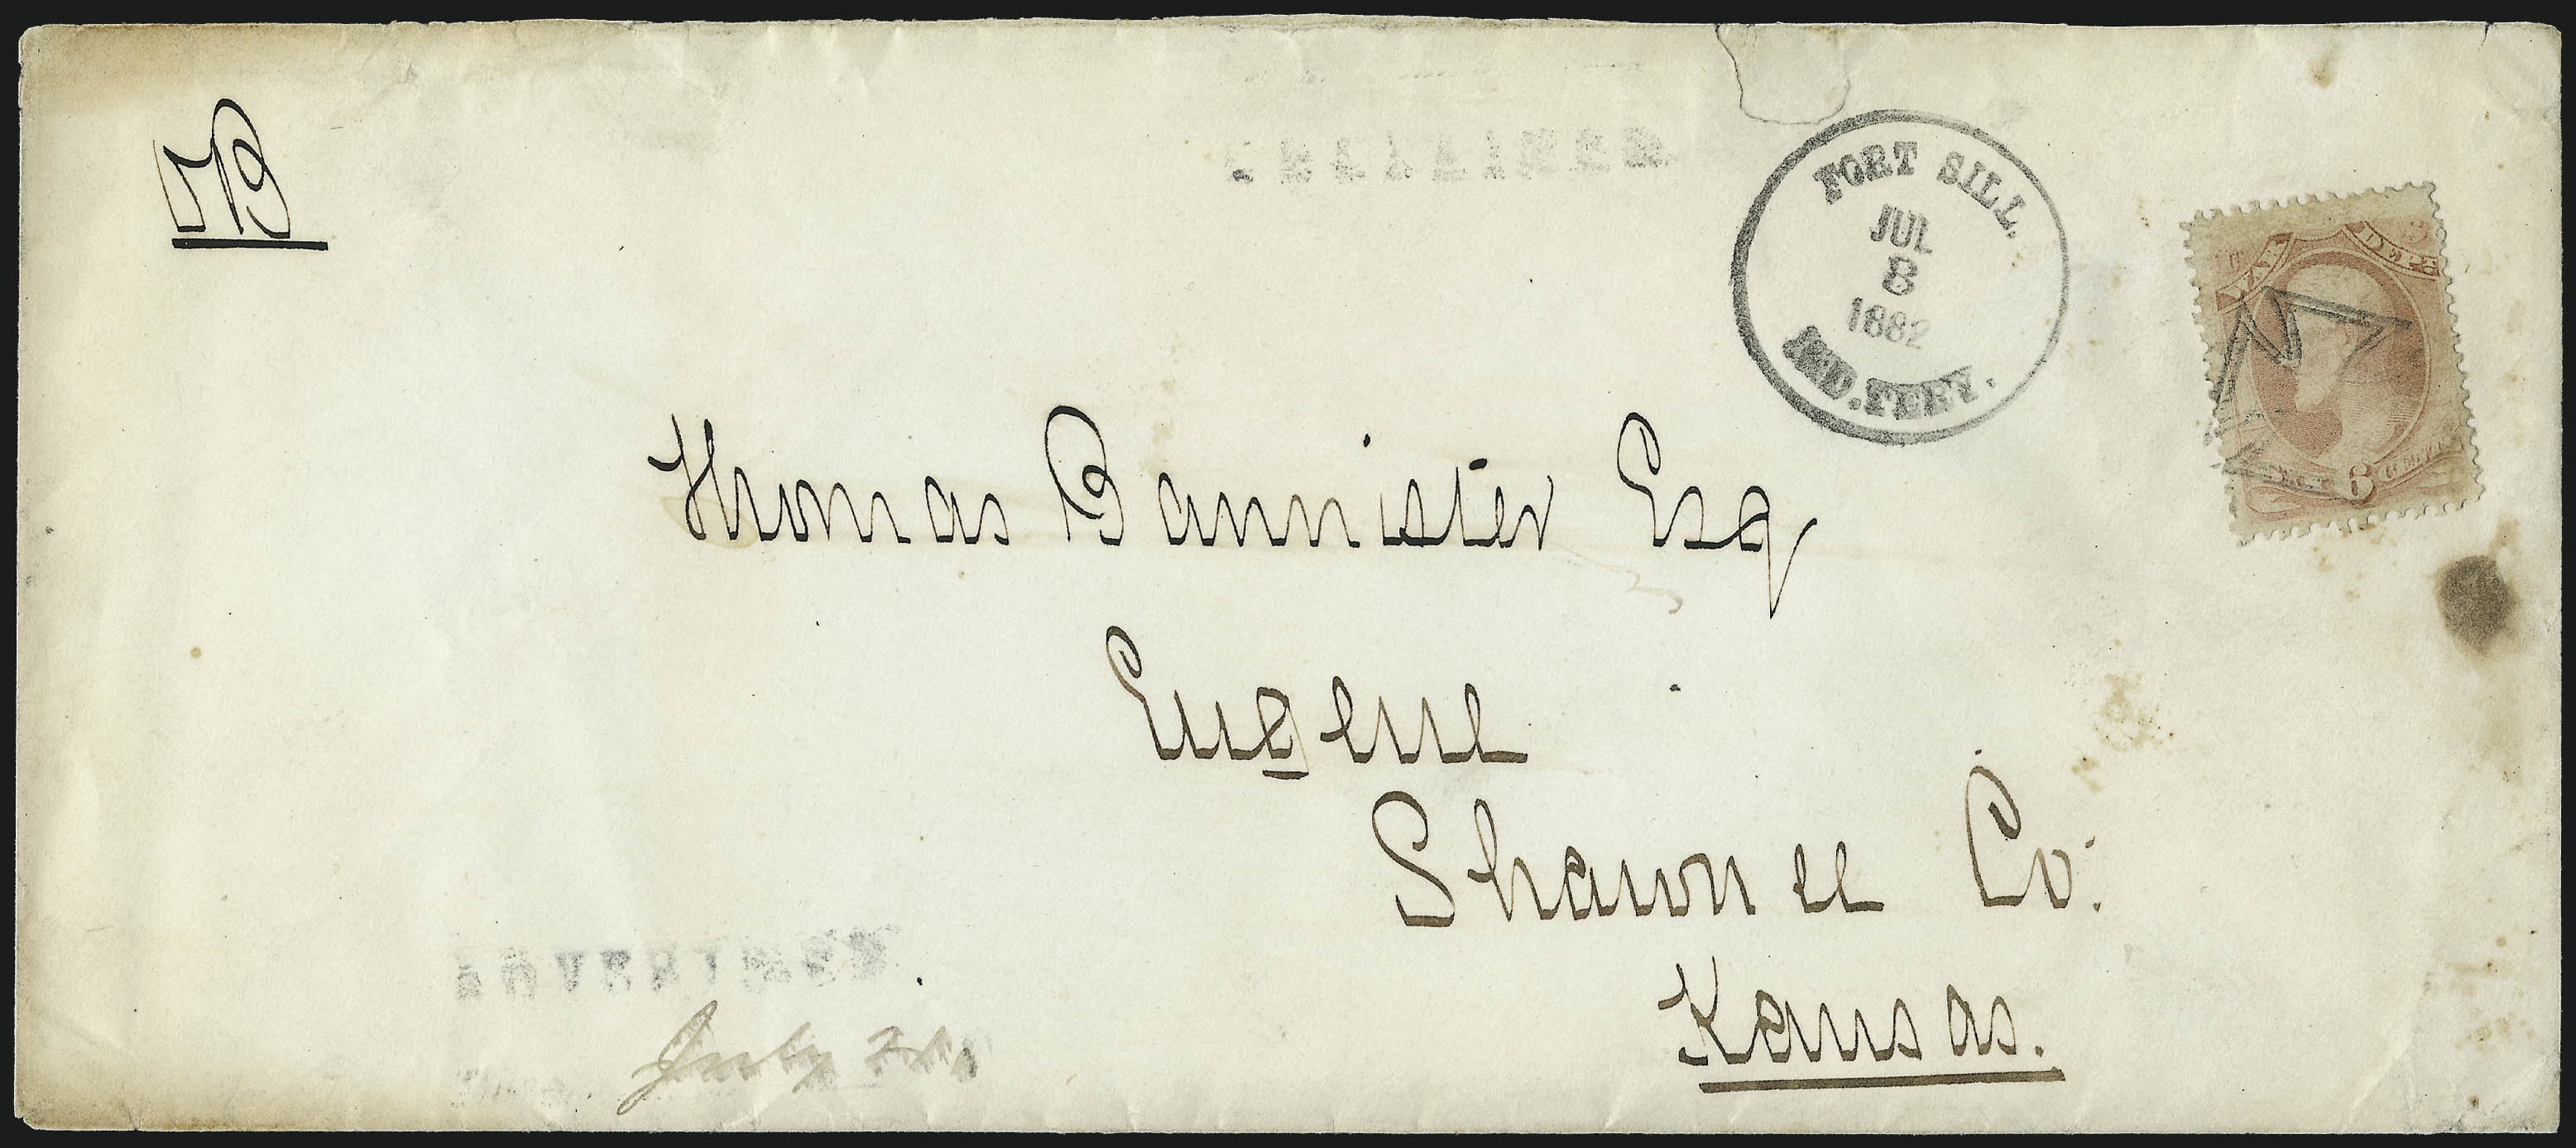 TB
UNCLAIMED
FORT SILL.
JUL
8
1882
IND. TERY.
WAR DEPT
SIX 6 CENTS
Thomas Bannister Esq
Eugene
Shawnee Co:
Kansas.
ADVERTISED
July